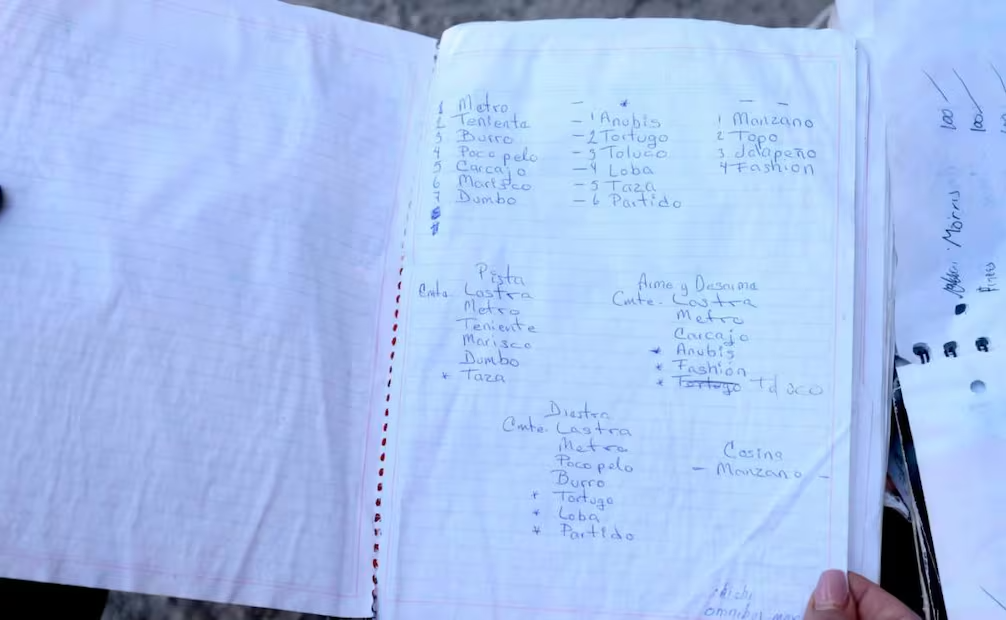 1 Metro
2 Teniente
3 Burro
4 Poco pelo
5 Carcajo
6 Marisco
7 Dumbo
- *
- 1 Anubis
- 2 Tortugo
- 3 Toluco
- 4 Loba
- 5 Taza
- 6 Partido
- -
1 Manzano
2 Topo
3 Jalapeño
4 Fashion
Pista
Cmte. Lastra
Metro
Teniente
Marisco
Dumbo
* Taza
Arme y Desarme
Cmte. Lastra
Metro
Carcajo
* Anubis
* Fashión
* Tortugo Toluco
Diestra
Cmte. Lastra
Metro
Poco pelo
Burro
* Tortugo
* Loba
* Partido
Cosina
- Manzano -
100
100